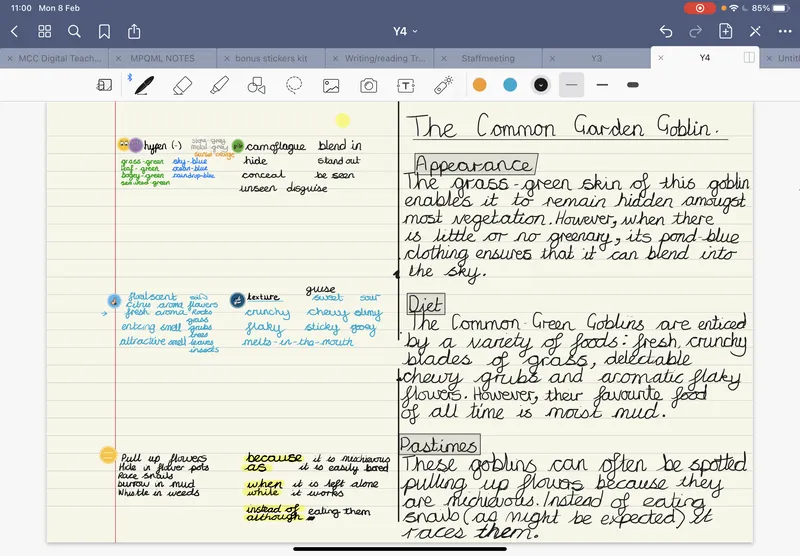 11:00 Mon 8 Feb
85%
Y4
MCC Digital Teach...
MPQML NOTES
bonus stickers kit
Writing/reading Tr...
Staffmeeting
Y3
Y4
Untit
hyphen (-)
slate-grey
metal-grey
sunset-orange
grass-green
leaf-green
bogey-green
seaweed-green
sky-blue
ocean-blue
raindrop-blue
camoflague blend in
hide stand out
conceal be seen
unseen disguise
guise
floral scent
citrus aroma flowers
fresh aroma Roots
grass
enticing smell grubs
trees
attractive smell leaves
insects
texture sweet sour
crunchy chewy slimy
flaky sticky gooey
melts-in-the-mouth
Pull up flowers
Hide in flower pots
Race snails
burrow in mud
Whistle in weeds
because it is mischievous
as it is easily bored
when it is left alone
while it works
instead of eating them
although
The Common Garden Goblin.
Appearance
The grass-green skin of this goblin
enables it to remain hidden amongst
most vegetation. However, when there
is little or no greenary, its pond-blue
clothing ensures that it can blend into
the sky.
Diet
The Common-Green Goblins are enticed
by a variety of foods: fresh, crunchy
blades of grass, delectable
chewy grubs and aromatic flaky
flowers. However, their favourite food
of all time is moist mud.
Pastimes
These goblins can often be spotted
pulling up flowers because they
are michievous. Instead of eating
snails (as might be expected) it
races them.